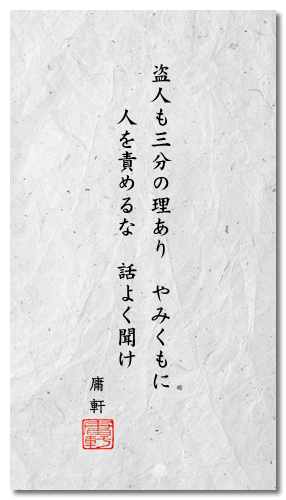 盗人も三分の理あり　やみくもに
人を責めるな　話よく聞け
庸軒